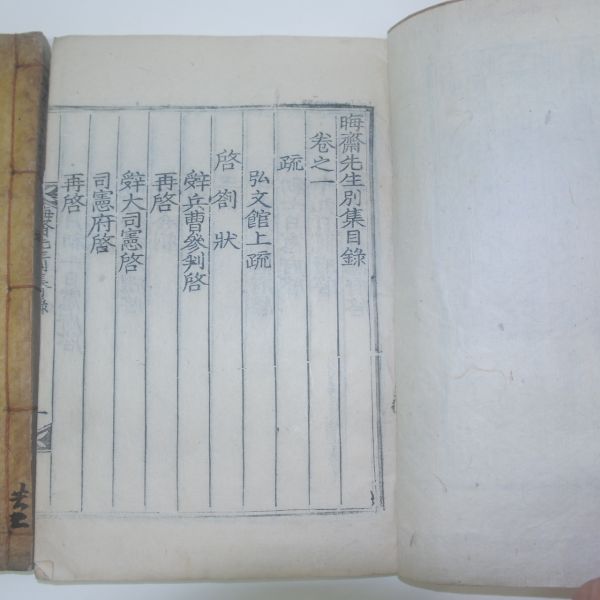 晦齋先生別集目錄
卷之一
疏
弘文館上疏
啓劄狀
辭兵曹參判啓
再啓
辭大司憲啓
司憲府啓
再啓
晦齋先生別集目錄